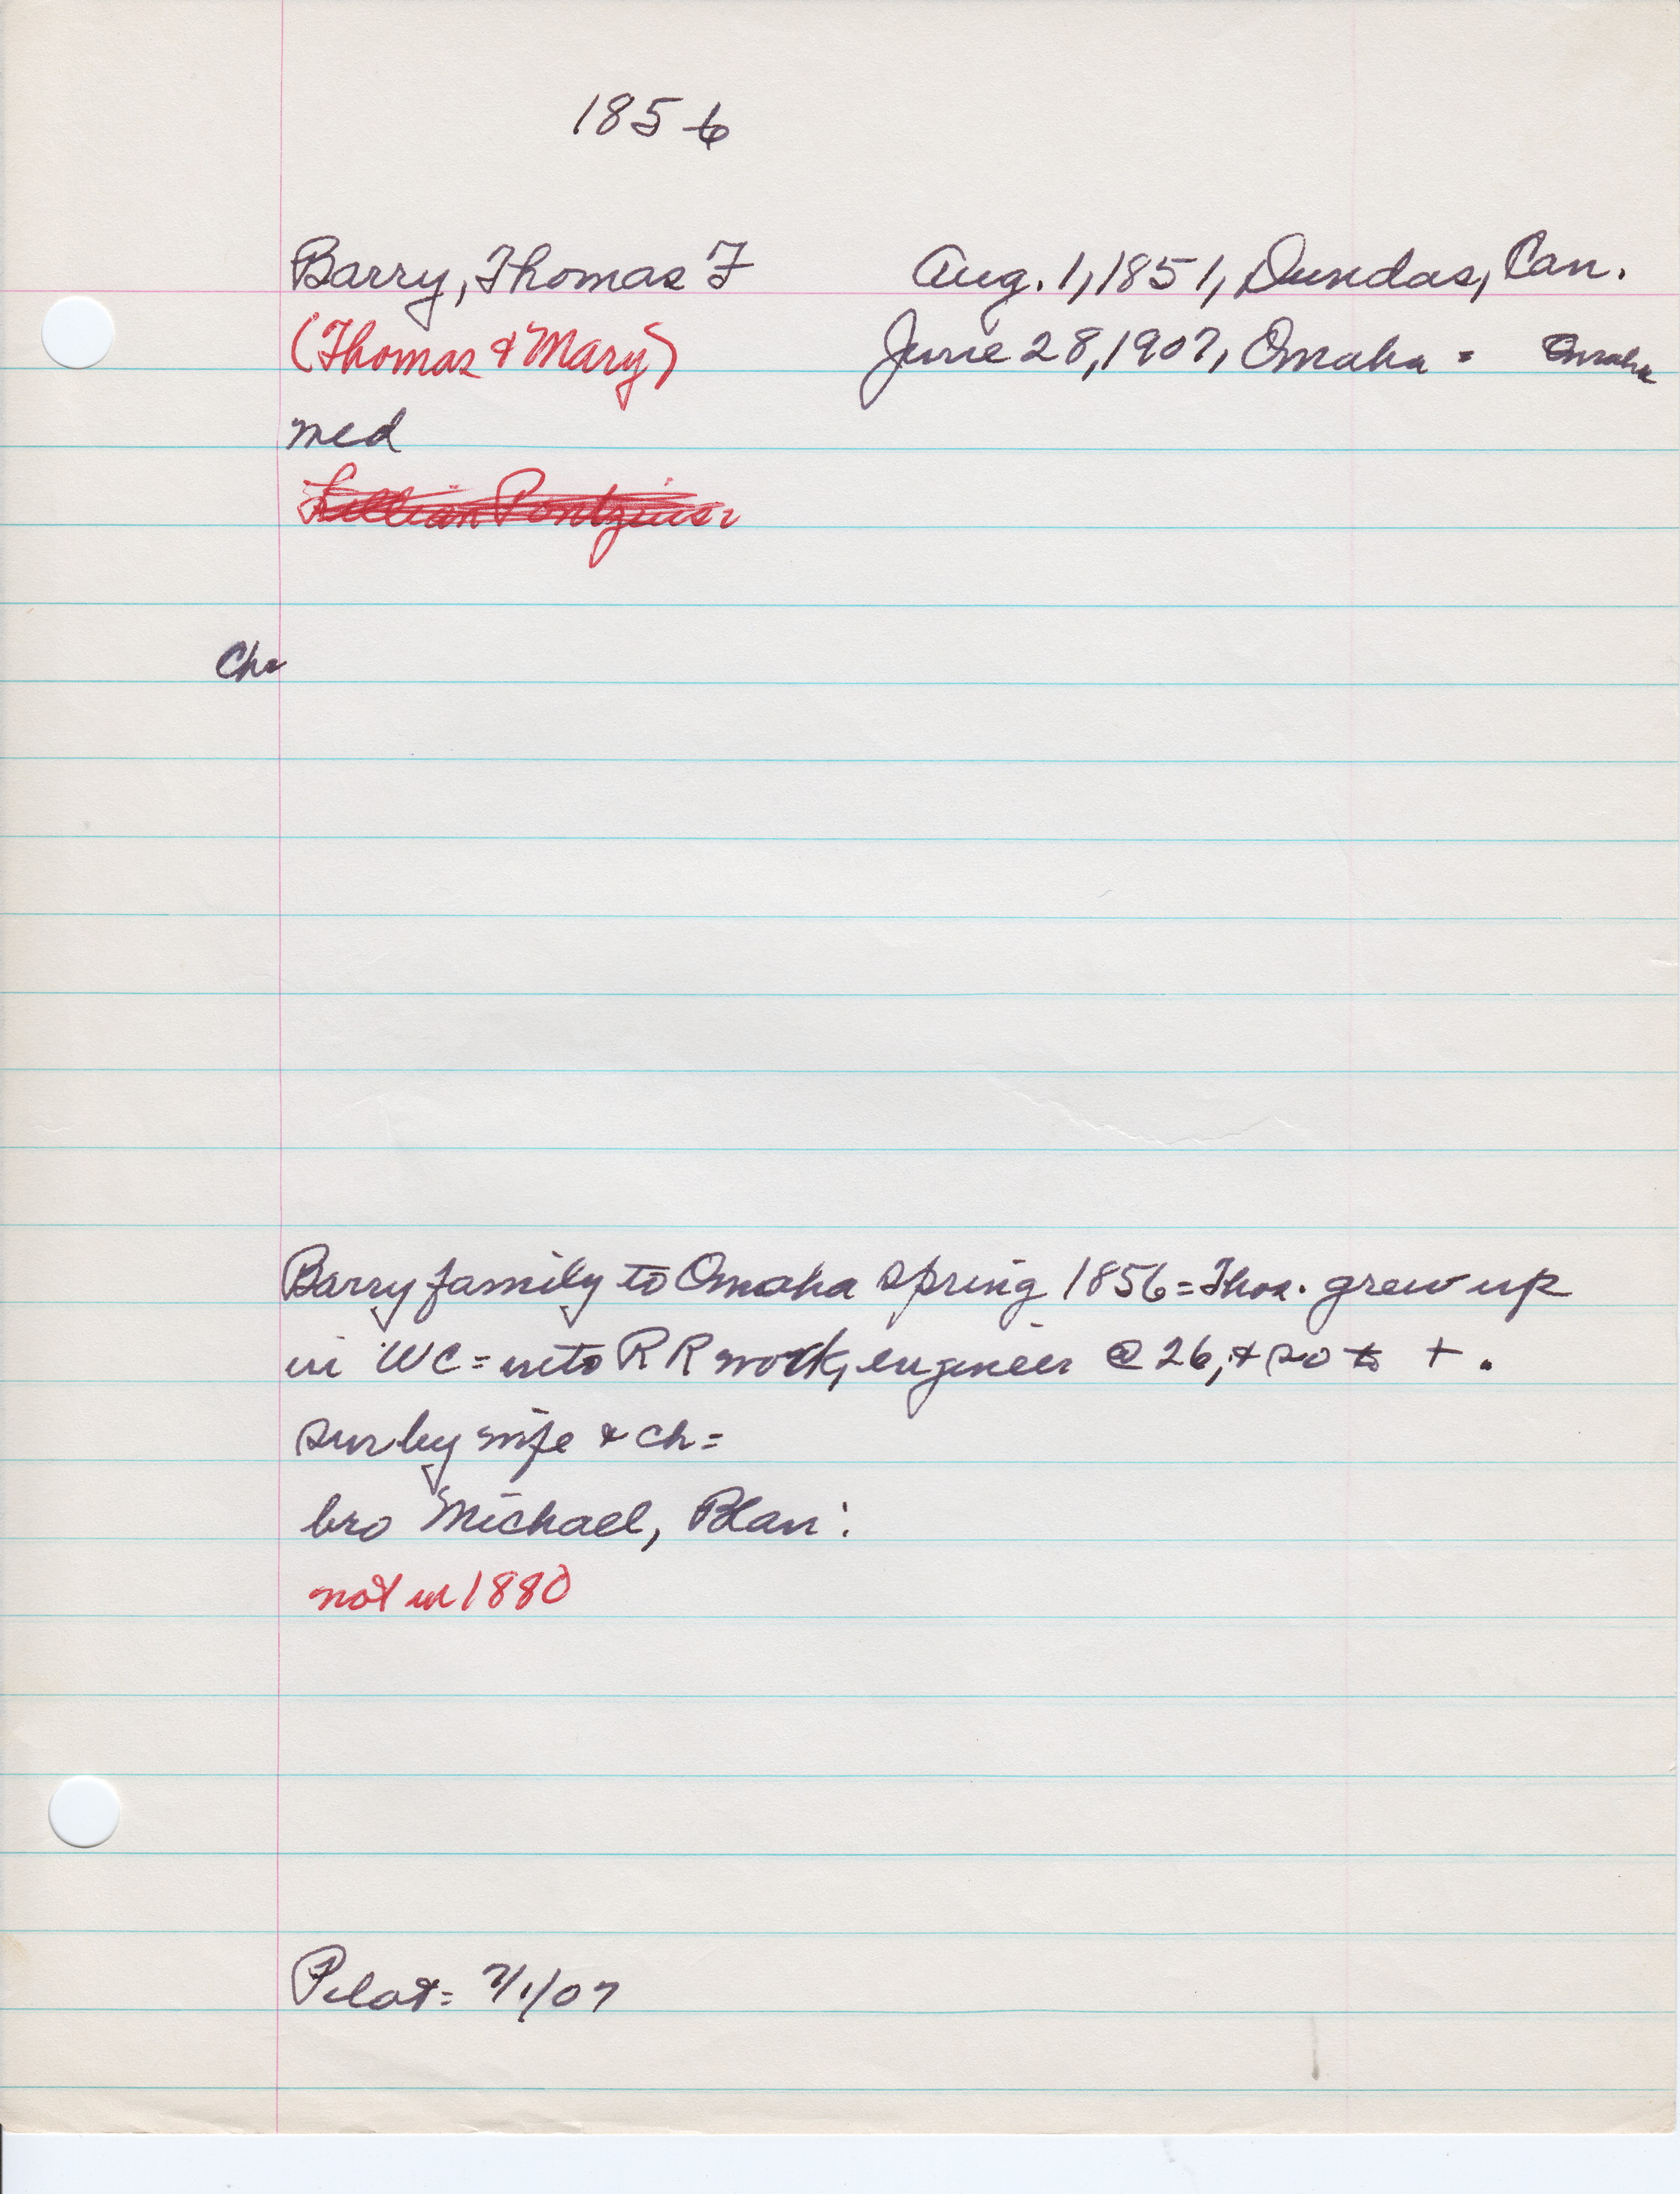 1856
Barry, Thomas F Aug. 1, 1851, Dundas, Can.
(Thomas & Mary) June 28, 1907, Omaha = Omaha
med
Lillian
Ch=
Barry family to Omaha spring 1856 = Thos. grew up
in WC = into RR work, engineer @ 26, & so to +.
sur by wife & ch =
bro Michael, Blair:
not in 1880
Pilot = 7/1/07